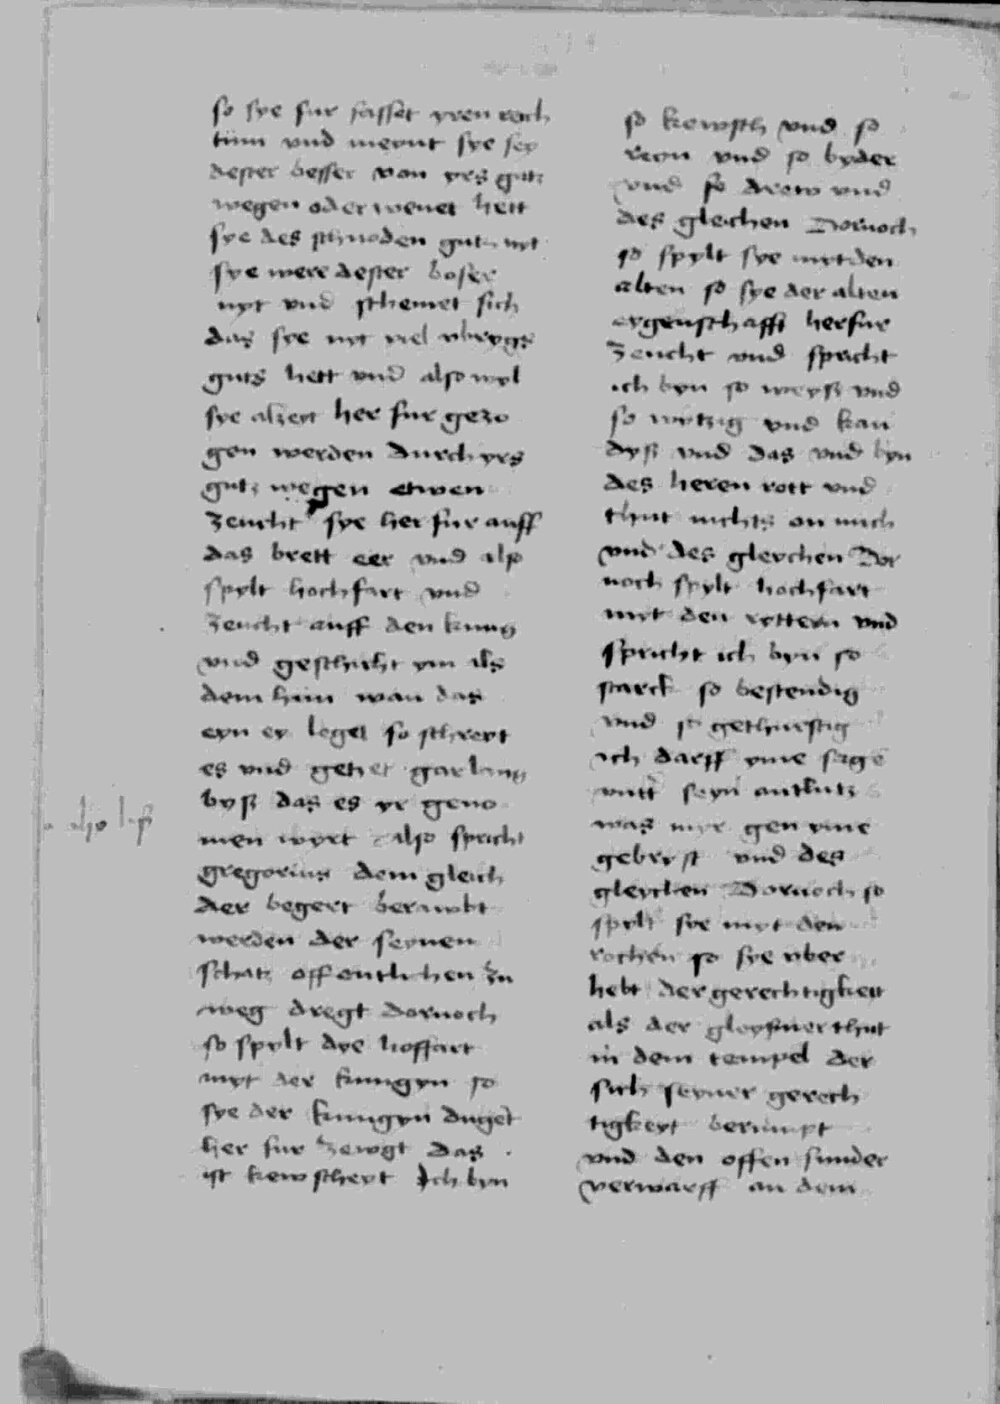 so sye fur fasset yren reich
tum vnd meynt sye sey
dester besser von yrs gutz
wegen oder wenet hett
sye des schnoden gutz nyt
sye were dester boser
nyt vnd schemet sich
das sye nyt viel vbrygs
guts hett vnd also wyl
sye alzeyt her fur gezo
gen werden durch yrs
gutz wegen etwen
zeucht sye her fur auff
das brett eer vnd also
spylt hochfart vnd
zeucht auff den kung
vnd geschicht ym als
dem hun wan das
eyn ey legel so schreyt
es vnd gehet gar lang
bysz das es yr geno
men wyrt also spricht
gregorius dem gleich
der begert beraubt
werden der seynen
schatz offentlichen zu
weg dregt dornoch
so spylt dye hoffart
myt der kungyn so
sye der kungyn duget
her fur zewgt das
ist kewscheyt Ich byn
so kewsch vnd so
reyn vnd so byder
vnd so drew vnd
des gleichen Dornoch
so spylt sye myt den
alten so sye der alten
eygenschafft herfur
zeucht vnd spricht
ich byn so weysz vnd
so wytzig vnd kan
dysz vnd das vnd byn
des heren rott vnd
thut nichts on mich
vnd des gleychen Dor
noch spylt hochfart
myt den ryttern vnd
spricht ich byn so
starck so bestendig
vnd so gethurstig
ich darff yme sage
vntt seyn antlutz
was myr gen yme
gebryst vnd des
gleychen Dornoch so
spylt sye myt den
rochen so sye vber
hebt der gerechtigkeit
als der gleysner thut
in dem tempel der
sich seyner gerech
tigkeyt berumpt
vnd den offen sunder
verwarff an dem